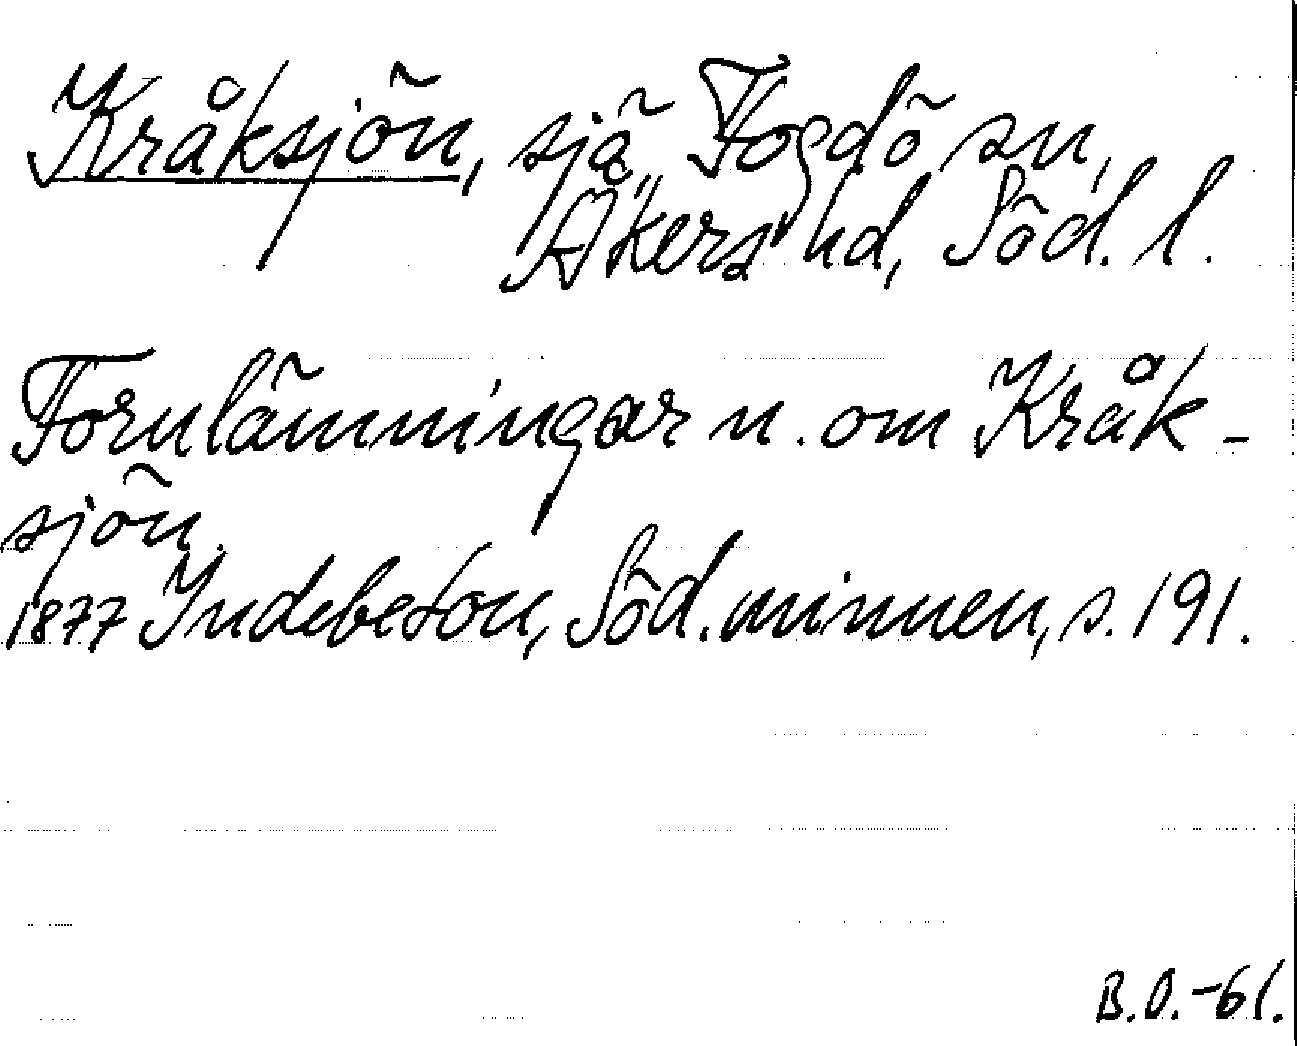 Kråksjön, sjö, Fogdö sn,
Åkers hd, Söd. l.
Fornlämningar n. om Kråk-
sjön.
1877 Indebetou, Söd. minnen, s. 191.
B.O.-61.